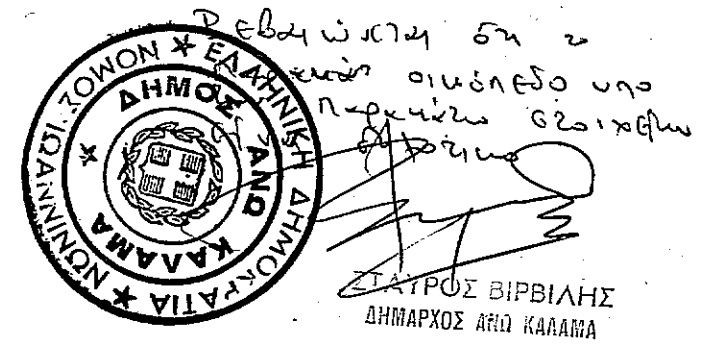 Βεβαιώνεται ότι το
οικόπεδο υπο
παρακάτω στοιχεία
ΕΛΛΗΝΙΚΗ ΔΗΜΟΚΡΑΤΙΑ ★ ΝΟΜΟΣ ΙΩΑΝΝΙΝΩΝ ★
ΔΗΜΟΣ ΑΝΩ ΚΑΛΑΜΑ
ΣΤΑΥΡΟΣ ΒΙΡΒΙΛΗΣ
ΔΗΜΑΡΧΟΣ ΑΝΩ ΚΑΛΑΜΑ